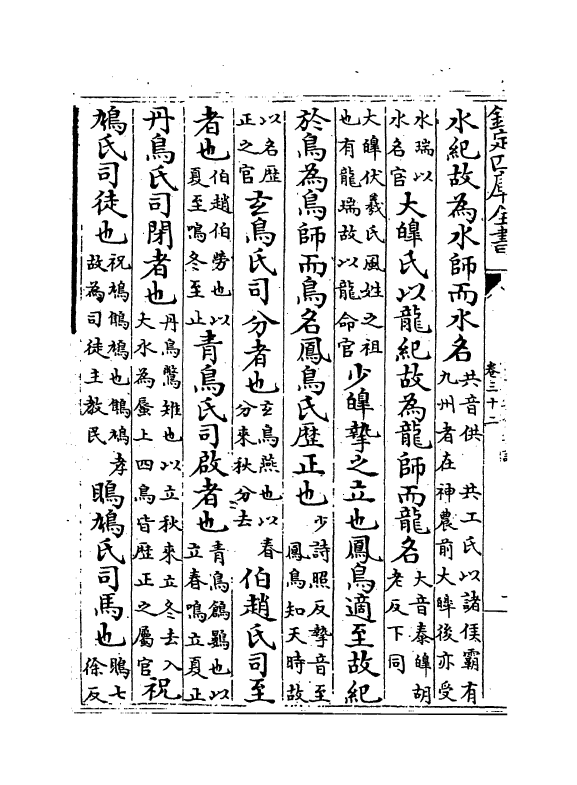 欽定四庫全書
卷三十二
水紀故為水師而水名共音供 共工氏以諸侯霸有九州者在神農前大皥後亦受
水瑞以水名官大皥氏以龍紀故為龍師而龍名大音泰皥胡老反下同
大皥伏羲氏風姓之祖也有龍瑞故以龍命官少皥摯之立也鳳鳥適至故紀
於鳥為鳥師而鳥名鳳鳥氏歴正也少詩照反摯音至鳳鳥知天時故
以名歴正之官玄鳥氏司分者也玄鳥燕也以春分來秋分去伯趙氏司至
者也伯趙伯勞也以夏至鳴冬至止青鳥氏司啟者也青鳥鶬鷃也以立春鳴立夏止
丹鳥氏司閉者也丹鳥鷩雉也以立秋來立冬去入大水為蜃上四鳥皆歴正之屬官祝
鳩氏司徒也祝鳩鷦鳩也鷦鳩孝故為司徒主教民鴡鳩氏司馬也鴡七徐反